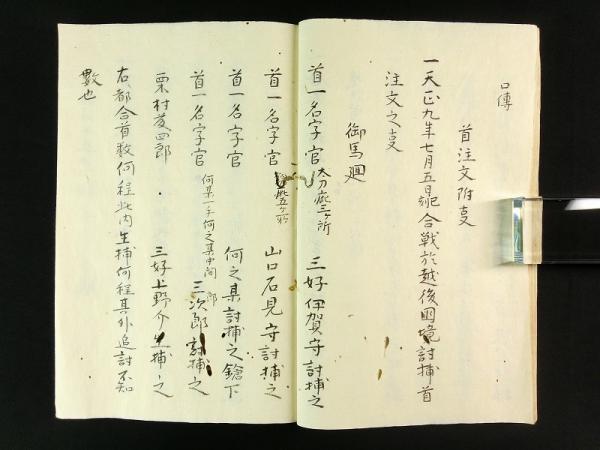 口傳
首注文附㕝
一天正九年七月五日 合戦於越後国境討捕首
注文之㕝
御馬廻
首一名字官 太刀疵三ヶ所 三好伊賀守討捕之
首一名字官 疵五ヶ所 山口石見守討捕之
首一名字官 何之某討捕之鎗下
首一名字官 何某一手何之某中間 三次郎討捕之
栗村 四郎 三好上野介生捕之
右都合首数何程此内生捕何程其外追討不知
數也